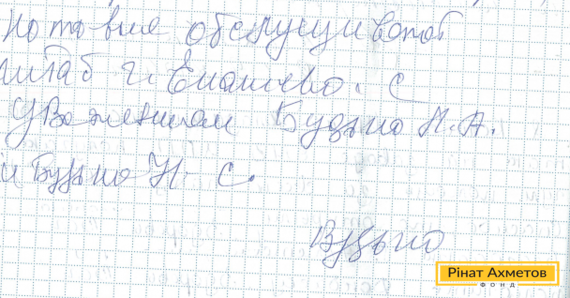 которые обслуживают
штаб г. Енакиево. С
уважением Будько Л. А.
и Будько Н. С.
Будько
Рінат Ахметов
ФОНД